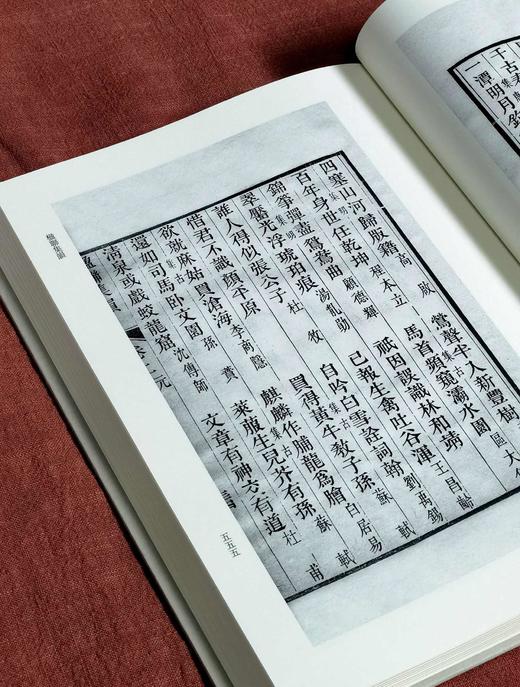 千古
一潭明月釣
四塞山河歸版籍 高啟 鶯聲半入新豐樹 區大
百年身世任乾坤 程本立 馬首頻窺灞水園
集明
錦箏彈盡鴛鴦曲 顧德輝 祇因誤識林和靖 王
集古
翠靨光浮琥珀痕 湯 已報生禽吐谷渾 王昌齡
集明
誰人得似張公子 杜牧 自吟白雪詮詞翰 劉禹錫
集古
惜君不識顏平原 買得黃牛教子孫 蘇軾
欲就麻姑買滄海 李商隱 麒麟作脯龍為膾 白居易
集古
還如司馬臥文園 孫蕡 萊菔生兒芥有孫 蘇軾
集
清泉或戲蛟龍窟 沈傳師 文章有神交有道 杜甫
元
楹聯集錦
五五五